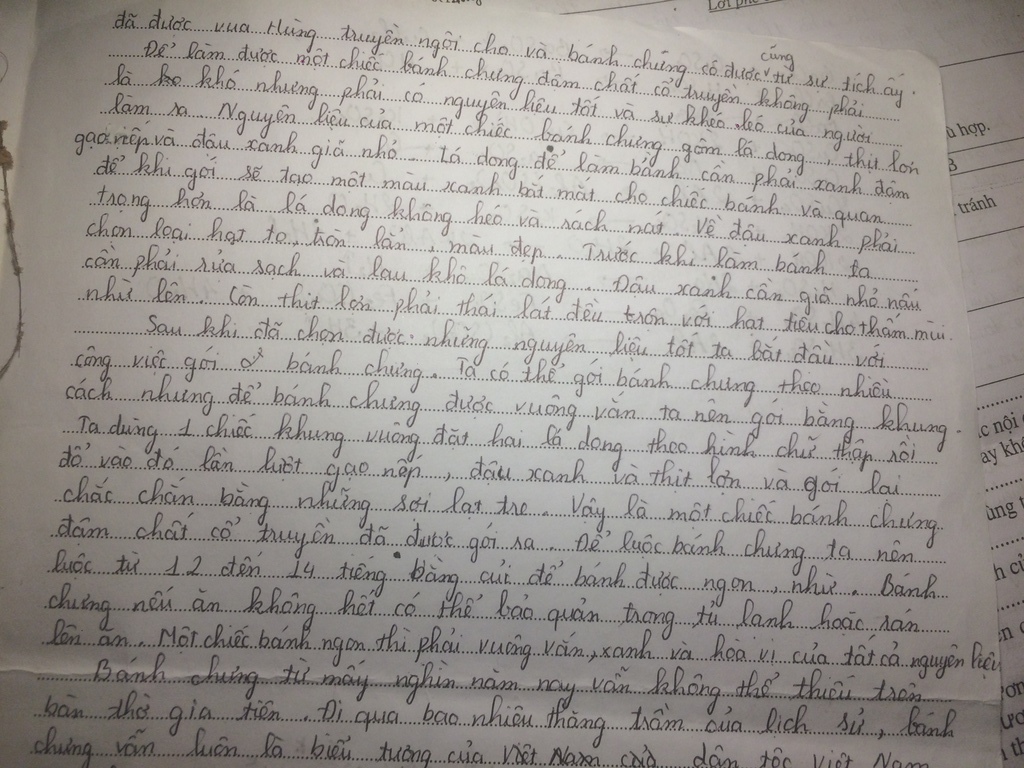 đã được vua Hùng truyền ngôi cho và bánh chưng có được cũng từ sự tích ấy.
Để làm được một chiếc bánh chưng đậm chất cổ truyền không phải
là ko khó nhưng phải có nguyên liệu tốt và sự khéo léo của người
làm ra. Nguyên liệu của một chiếc bánh chưng gồm lá dong, thịt lợn
gạo nếp và đậu xanh giã nhỏ. Lá dong để làm bánh cần phải xanh đậm
để khi gói sẽ tạo một màu xanh bắt mắt cho chiếc bánh và quan
trọng hơn là lá dong không héo và rách nát. Về đậu xanh phải
chọn loại hạt to, tròn lẳn, màu đẹp. Trước khi làm bánh ta
cần phải rửa sạch và lau khô lá dong. Đậu xanh cần giã nhỏ nấu
nhừ lên. Còn thịt lợn phải thái lát đều trộn với hạt tiêu cho thấm mùi.
Sau khi đã chọn được những nguyên liệu tốt ta bắt đầu với
công việc gói bánh chưng. Ta có thể gói bánh chưng theo nhiều
cách nhưng để bánh chưng được vuông vắn ta nên gói bằng khung.
Ta dùng 1 chiếc khung vuông đặt hai lá dong theo hình chữ thập rồi
đổ vào đó lần lượt gạo nếp, đậu xanh và thịt lợn và gói lại
chắc chắn bằng những sợi lạt tre. Vậy là một chiếc bánh chưng
đậm chất cổ truyền đã được gói ra. Để luộc bánh chưng ta nên
luộc từ 12 đến 14 tiếng bằng củi để bánh được ngon, nhừ. Bánh
chưng nếu ăn không hết có thể bảo quản trong tủ lạnh hoặc rán
lên ăn. Một chiếc bánh ngon thì phải vuông vắn, xanh và hòa vị của tất cả nguyên liệu
Bánh chưng từ mấy nghìn năm nay vẫn không thể thiếu trên
bàn thờ gia tiên. Đi qua bao nhiêu thăng trầm của lịch sử, bánh
chưng vẫn luôn là biểu tượng của Việt Nam dân tộc Việt Nam
hợp.
tránh